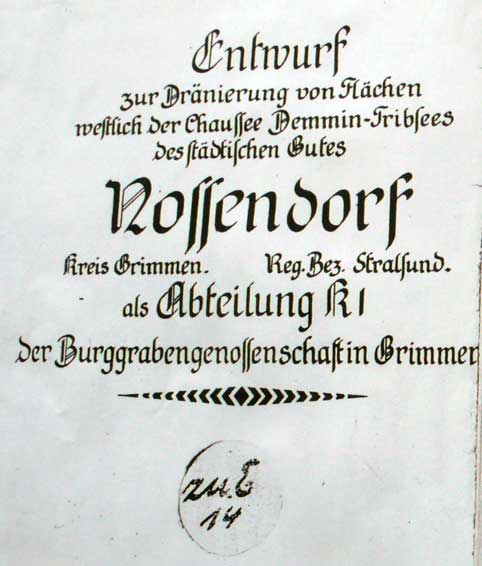 Entwurf
zur Dränierung von Flächen
westlich der Chaussee Demmin-Tribsees
des städtischen Gutes
Nossendorf
Kreis Grimmen. Reg. Bez. Stralsund.
als Abteilung K I
der Burggrabengenossenschaft in Grimmen
zu. E
14